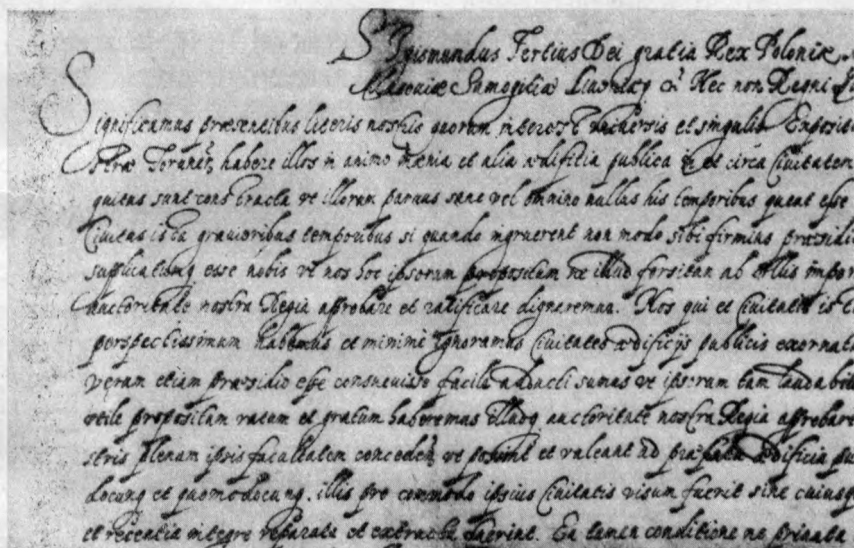 Sigismundus Tertius Dei gratia Rex Poloniæ
Masouiæ Samogitiæ Liuoniæq Nec non Regni
Significamus præsentibus literis nostris quorum interest vniuersis et singulis Exposit
stræ Torunen, habere illos in animo mænia et alia ædifitia publica in et circa Ciuitatem
quitus sunt constructa vt illorum paruus sane vel omnino nullus his temporibus queat esse
Ciuitas ista grauioribus temporibus si quando ingruerent non modo sibi firmius præsidi
supplicatumq esse nobis vt nos hoc ipsorum propositum ne illud forsitan ab illis impor
auctoritate nostra Regia approbare et ratificare dignaremur. Nos qui et Ciuitatis is
perspectissimum habemus et minime ignoramus Ciuitates ædificijs publicis exornat
verum etiam præsidio esse consueuisse facile adducti sumus vt ipsorum tam laudabil
vtile propositum ratum et gratum haberemus illudq auctoritate nostra Regia approbare
stris plenam ipsis facultatem conceden, vt possint et valeant ad præfata ædificia pu
docunq et quomodocunq. illis pro commodo ipsius Ciuitatis visum fuerit sine cuiusq
et recentia integre reparata et extructa fuerint. Ea tamen conditione ne priuata